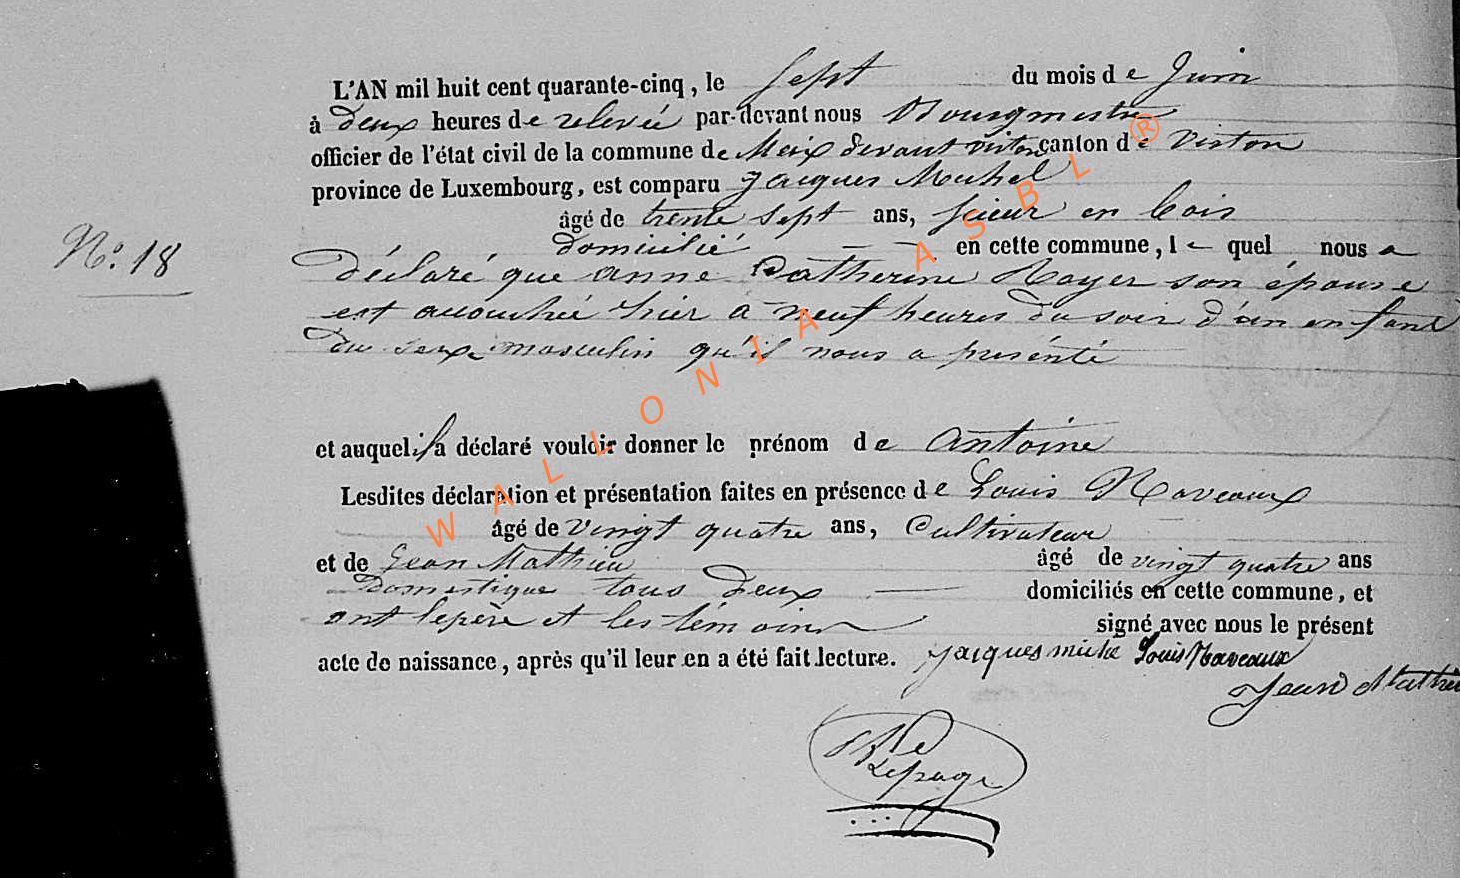 L'AN mil huit cent quarante-cinq, le Sept du mois de Juin
à deux heures de relevée par-devant nous Bourgmestre
officier de l'état civil de la commune de Meix devant virton canton de Virton
province de Luxembourg, est comparu Jacques Michel
âgé de trente sept ans, Scieur en bois
domicilié en cette commune, le quel nous a
N° 18
déclaré que anne Catherine Royer son épouse
est accouchée hier à neuf heures du soir d'un enfant
du sexe masculin qu'il nous a présenté
et auquel il a déclaré vouloir donner le prénom de Antoine
Lesdites déclaration et présentation faites en présence de Louis Naveaux
âgé de vingt quatre ans, Cultivateur
et de Jean Mathieu âgé de vingt quatre ans
Domestique tous deux domiciliés en cette commune, et
ont le père et les témoins signé avec nous le présent
acte de naissance, après qu'il leur en a été fait lecture. Jacques Louis Naveaux
Jean Mathieu
Lepage
WALLONIA ASBL ®